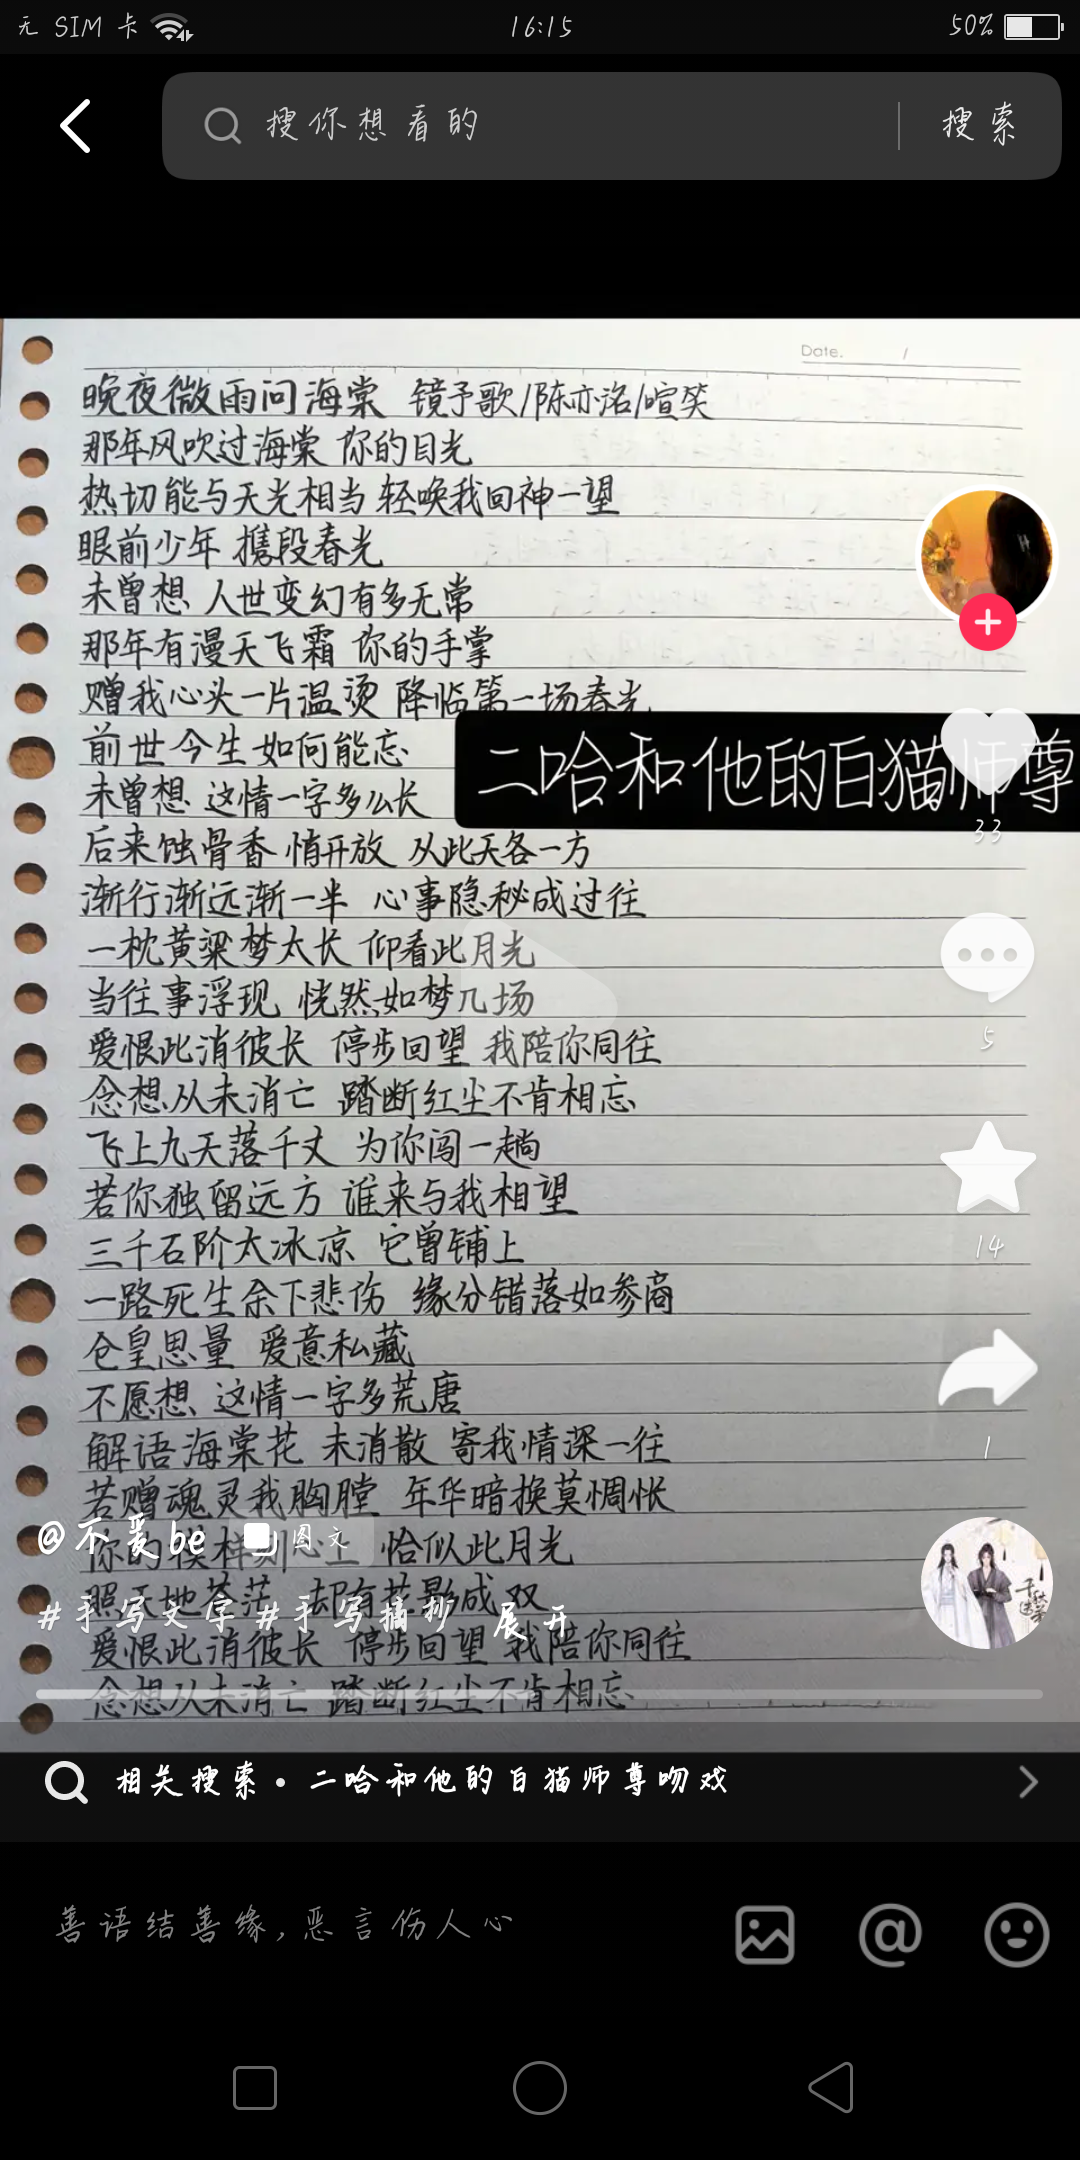 无 SIM 卡
16:15
50%
搜你想看的
搜索
Date. /
晚夜微雨问海棠 镜予歌/陈亦洺/喧笑
那年风吹过海棠 你的目光
热切能与天光相当 轻唤我回神一望
眼前少年 携段春光
未曾想 人世变幻有多无常
那年有漫天飞霜 你的手掌
赠我心头一片温烫 降临第一场春光
前世今生如何能忘
二哈和他的白猫师尊
未曾想 这情一字多么长
33
后来蚀骨香悄开放 从此天各一方
渐行渐远渐一半 心事隐秘成过往
一枕黄粱梦太长 仰看此月光
当往事浮现 恍然如梦几场
5
爱恨此消彼长 停步回望 我陪你同往
念想从未消亡 踏断红尘不肯相忘
飞上九天落千丈 为你闯一趟
若你独留远方 谁来与我相望
三千石阶太冰凉 它曾铺上
14
一路死生余下悲伤 缘分错落如参商
仓皇思量 爱意私藏
不愿想 这情一字多荒唐
解语海棠花 未消散 寄我情深一往
1
若赠魂灵我胸膛 年华暗换莫惆怅
@不爱be 图文
你的模样刻心上 恰似此月光
照天地苍茫 却有花影成双
#手写文字 #手写摘抄 展开
爱恨此消彼长 停步回望 我陪你同往
念想从未消亡 踏断红尘不肯相忘
相关搜索·二哈和他的白猫师尊吻戏
善语结善缘,恶言伤人心